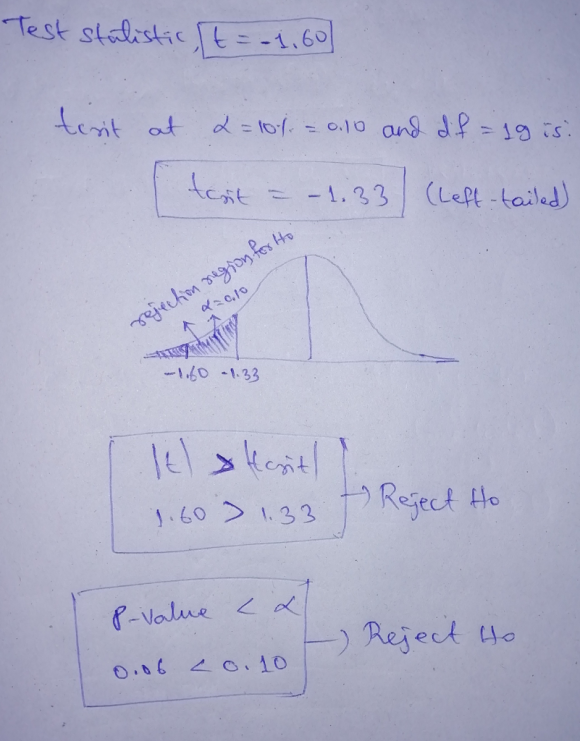 Test statistic, t = -1.60
tcrit at α = 10% = 0.10 and df = 19 is:
tcrit = -1.33 (Left-tailed)
rejection region for Ho
α = 0.10
-1.60 -1.33
|t| > |tcrit|
1.60 > 1.33 → Reject Ho
P-value < α
0.06 < 0.10 → Reject Ho